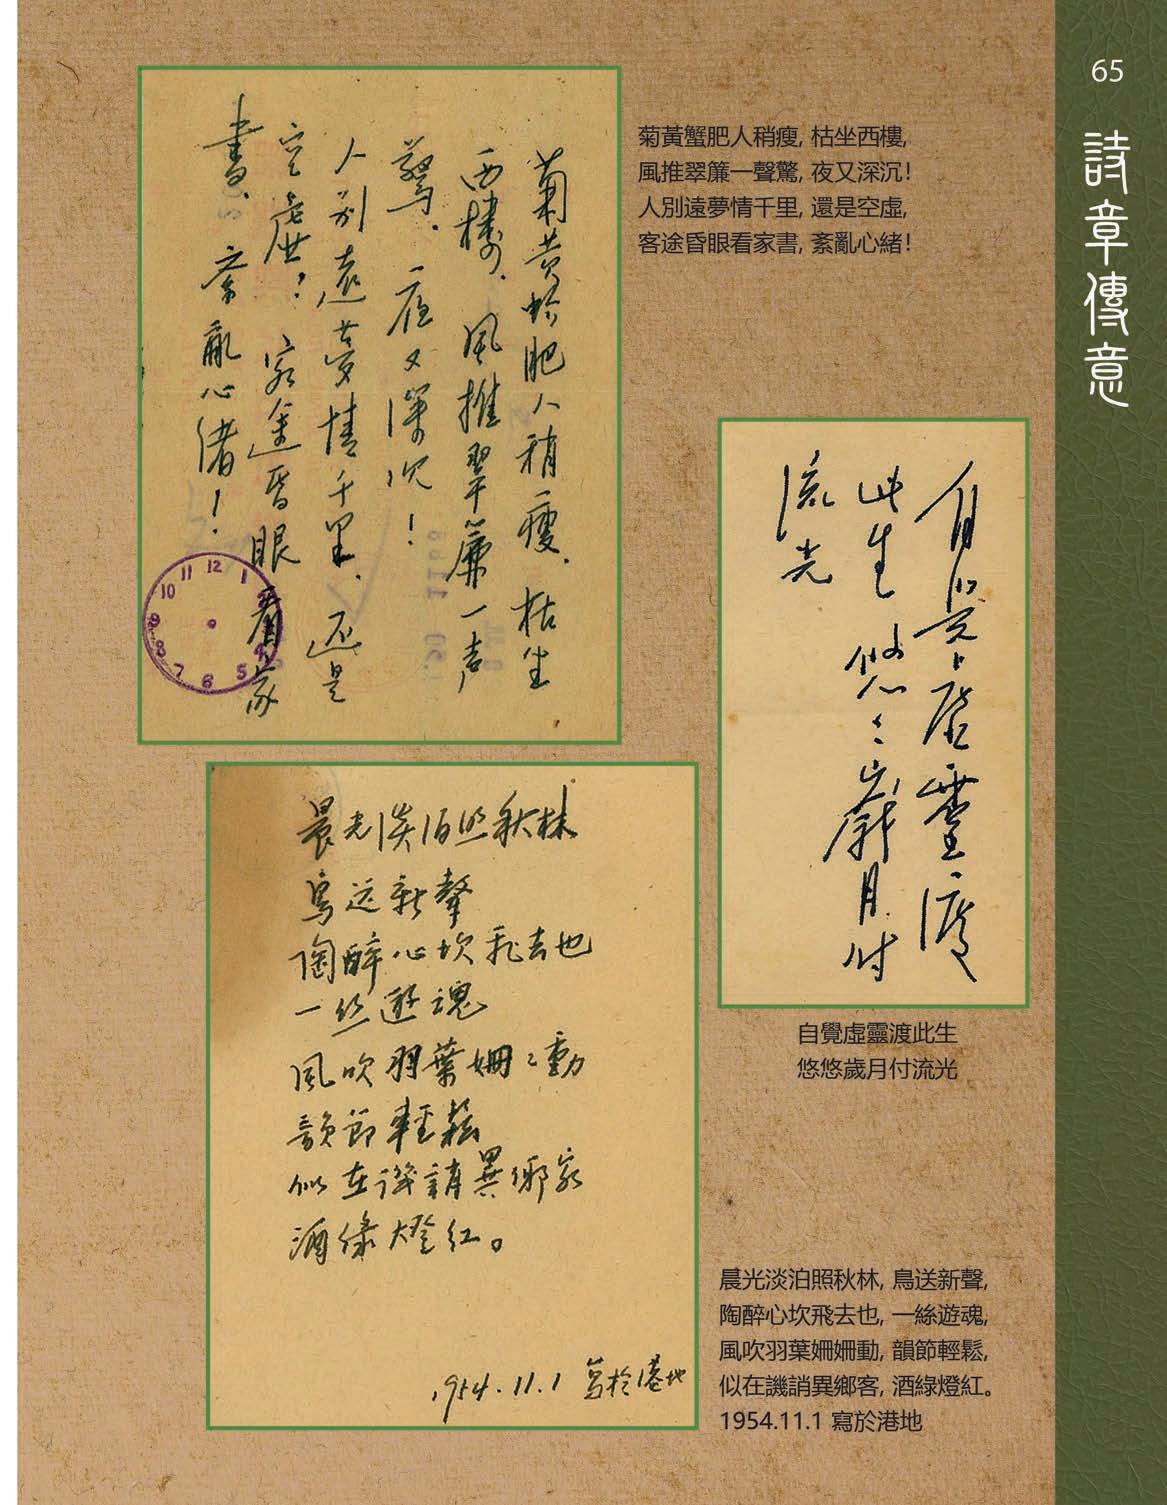 65
詩章傳意
菊黃蟹肥人稍瘦.枯坐
西樓.風推翠簾一声
驚.夜又深沉!
人別遠夢情千里.还是
空虛!客途昏眼看家
書、紊亂心緒!
12 1 4 5 6 7 8 9 10 11
菊黃蟹肥人稍瘦, 枯坐西樓,
風推翠簾一聲驚, 夜又深沉!
人別遠夢情千里, 還是空虛,
客途昏眼看家書, 紊亂心緒!
自覺虛靈渡
此生悠々歲月付
流光
自覺虛靈渡此生
悠悠歲月付流光
晨光淡泊照秋林
鳥送新聲
陶醉心坎飛去也
一丝遊魂
風吹羽葉姍々動
韻節輕鬆
似在譏誚異鄉客
酒綠燈紅。
1954.11.1 寫於港地
晨光淡泊照秋林, 鳥送新聲,
陶醉心坎飛去也, 一絲遊魂,
風吹羽葉姍姍動, 韻節輕鬆,
似在譏誚異鄉客, 酒綠燈紅。
1954.11.1 寫於港地